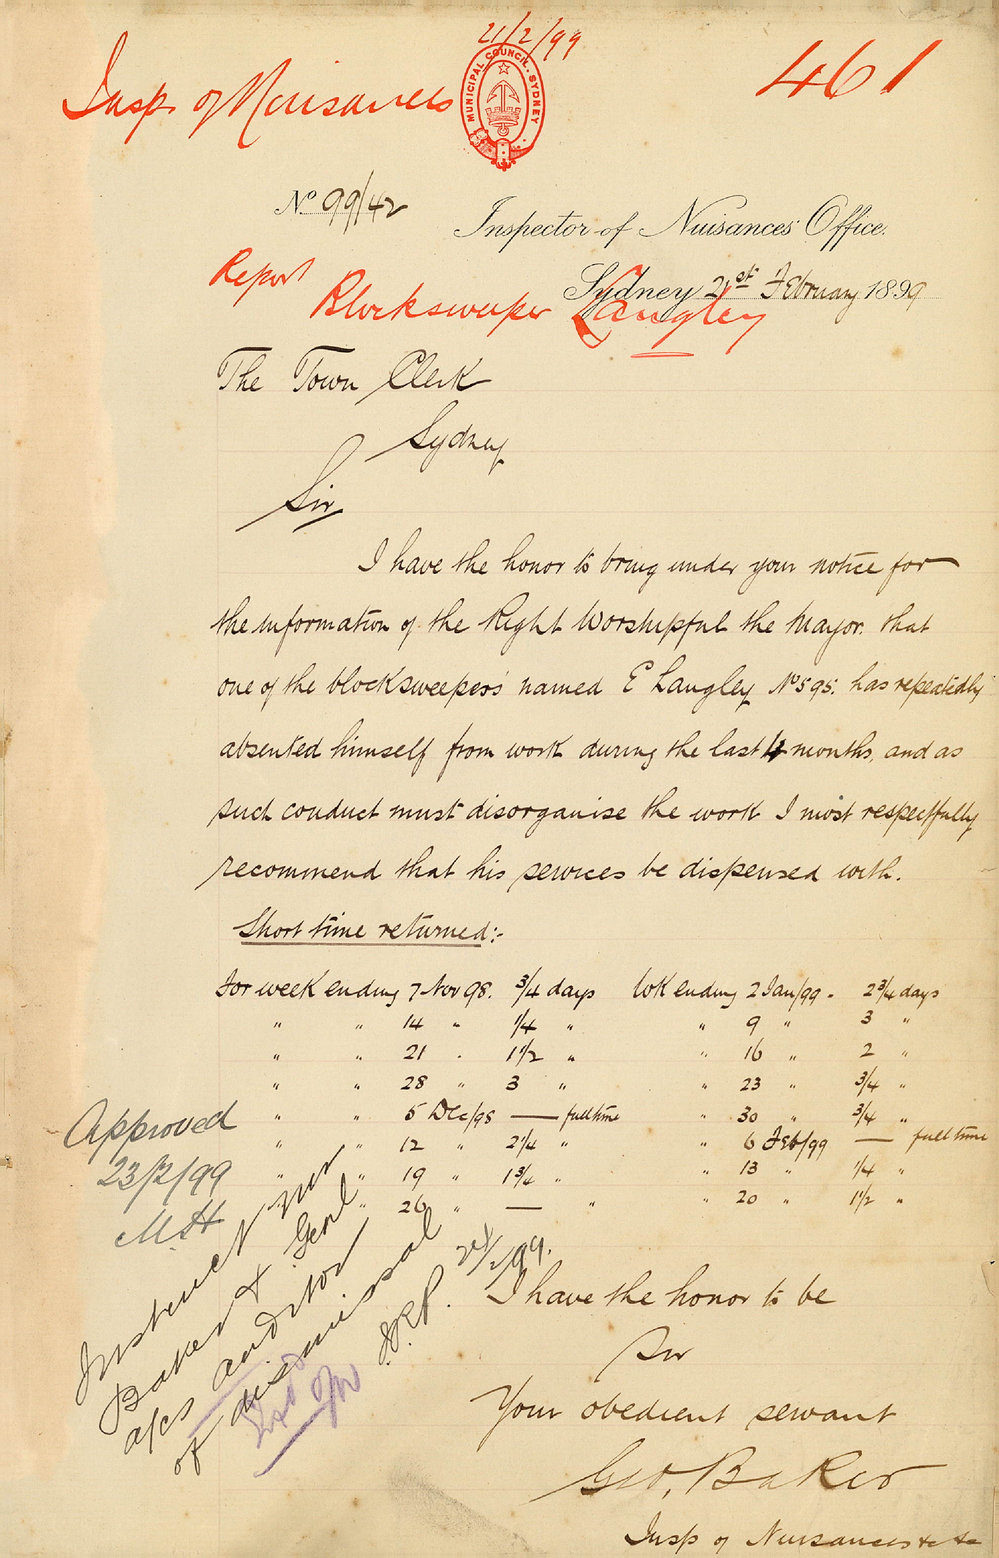 21/2/99
Insp. of Nuisances
MUNICIPAL COUNCIL. SYDNEY
461
No 99/142
Inspector of Nuisances Office.
Report
Sydney 21st February 1899
Blocksweeper Langley
The Town Clerk
Sydney
Sir
I have the honor to bring under your notice for
the information of the Right Worshipful the Mayor. that
one of the blocksweepers named E Langley No 595. has repeatedly
absented himself from work during the last 4 months, and as
such conduct must disorganise the work I most respectfully
recommend that his services be dispensed with.
Short time returned:-
For week ending 7 Nov 98. 3/4 days Wk ending 2 Jan/99 - 2 3/4 days
" " 14 " 1/4 " " 9 " 3 "
" " 21 " 1 1/2 " " 16 " 2 "
" " 28 " 3 " " 23 " 3/4 "
" " 5 Dec/98 — full time " 30 " 3/4 "
" " 12 " 2 1/4 " " 6 Feb/99 — full time
" " 19 " 1 3/4 " " 13 " 1/4 "
" " 26 " — " " 20 " 1 1/2 "
Approved
23/2/99
M.H
Instruct Mr
Baker & Genl
a/cs auditor
of dismissal
24/2/99.
I have the honor to be
Sir
Your obedient servant
Geo. Baker
Insp of Nuisances &c &c